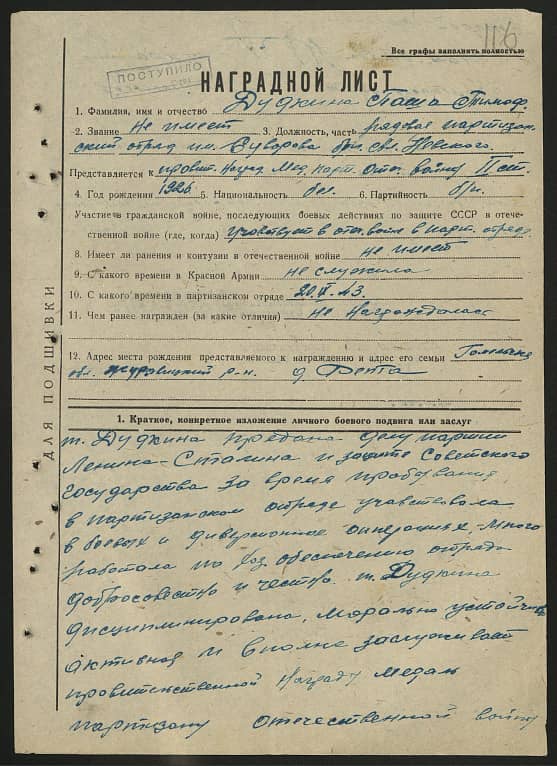 116
Все графы заполнять полностью
ПОСТУПИЛО
НАГРАДНОЙ ЛИСТ
1. Фамилия, имя и отчество Дудкина Паша Тимоф.
2. Звание не имеет 3. Должность, часть рядовая партизан-
ский отряд им. Суворова бр. Невского.
Представляется к правит. Наград. Мед. парт. Отеч. войны II ст.
4. Год рождения 1926 5. Национальность бел. 6. Партийность б/п.
Участие в гражданской войне, последующих боевых действиях по защите СССР в отече-
ственной войне (где, когда) участвует в отеч. войне в парт. отряде
8. Имеет ли ранения и контузии в отечественной войне не имеет
9. С какого времени в Красной Армии не служила
10. С какого времени в партизанском отряде 43
11. Чем ранее награжден (за какие отличия) не награждалась
12. Адрес места рождения представляемого к награждению и адрес его семьи Гомельская
обл. Журовицкий р-н. д.
ДЛЯ ПОДШИВКИ
1. Краткое, конкретное изложение личного боевого подвига или заслуг
т. Дудкина предана делу партии
Ленина-Сталина и защите Советского
Государства за время пребывания
в партизанском отряде учавствовала
в боевых и диверсионных операциях, много
работала по хоз. обеспечению отряда
добросовестно и честно. т. Дудкина
дисциплинирована, морально устойчива
активная и вполне заслуживает
правительственной Награды медаль
партизану отечественной войны